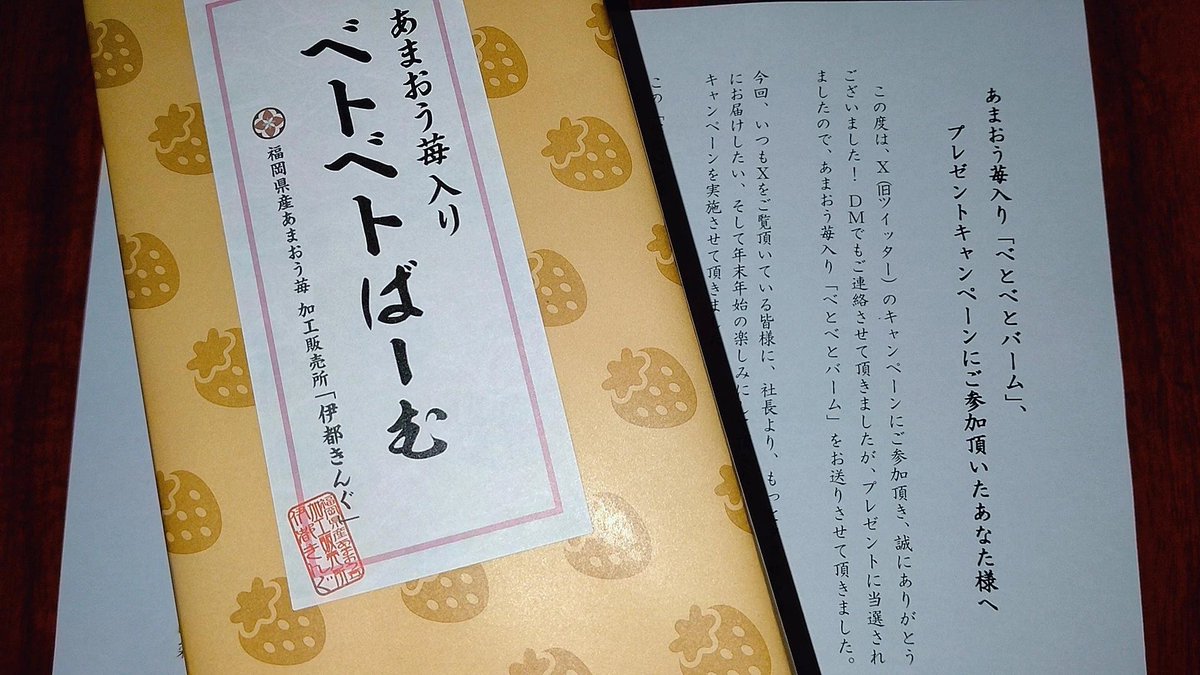 あまおう苺入り
ベトベトばーむ
福岡県産あまおう苺 加工販売所「伊都きんぐ」
あまおう苺入り「べとべとバーム」、
プレゼントキャンペーンにご参加頂いたあなた様へ
この度は、X(旧ツイッター)のキャンペーンにご参加頂き、誠にありがとう
ございました！DMでもご連絡させて頂きましたが、プレゼントに当選され
ましたので、あまおう苺入り「べとべとバーム」をお送りさせて頂きました。
今回、いつもXをご覧頂いている皆様に、社長より、もっと
にお届けしたい、そして年末年始の楽しみに
キャンペーンを実施させて頂きま
この